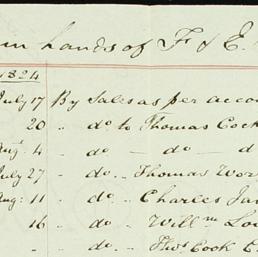 in hands of F & E.
1824
July 17 By Sales as per acco
20 .. do to Thomas Cock
Augt 4 .. do — do — d
July 27 .. do .. Thomas Wor
Aug: 11 .. do .. Charles Ja
16 .. do .. Willm Lo
.. do .. Thos Cook E